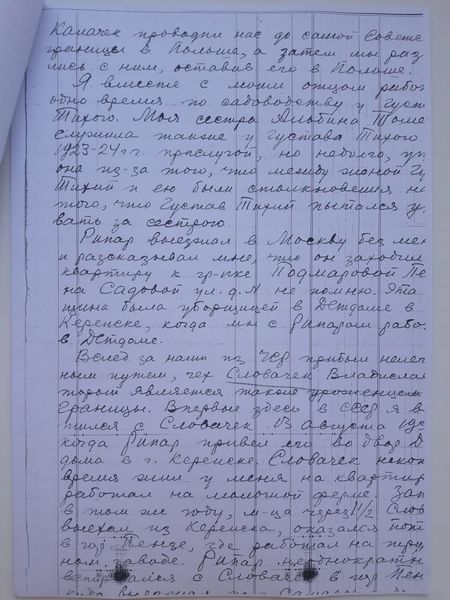 Калачек проводил нас до самой советс
границы в Польше, а затем мы раз
лись с ним, оставив его в Польше.
Я вместе с моим отцом работ
одно время по садоводству у Густ
Тихого. Моя сестра Альбина Томе
служила также у Густава Тихого
1923-24 г.г. прислугой, но недолго, ут
она из-за того, что между женой Гу
Тихий и ею были столкновения на
того, что Густав Тихий пытался ух
вать за сестрой.
Рипар выезжал в Москву без мен
и рассказывал мне, что он заходил
квартиру к гр-нке Подмаровой Пе
на Садовой ул. д. № не помню. Эта
щина была уборщицей в Детдоме в
Керенске, когда мы с Рипаром рабо
в Детдоме.
Вслед за нами из ЧСР прибыл нелег
ным путем, чех Словачек Владислав
торый является также уроженцем
границы. Впервые здесь в СССР я в
тился с Словачек в августе 19
когда Рипар привел его во двор Д
дома в г. Керенске. Словачек некот
время жил у меня на квартир
работал на молочной ферме. Зат
в том же году, м-ца через 1 1/2 Слов
выехал из Керенска, оказался пот
в гор Пензе, где работал на тру
ном заводе. Рипар неоднократн
встречался с Словачек в гор Пен